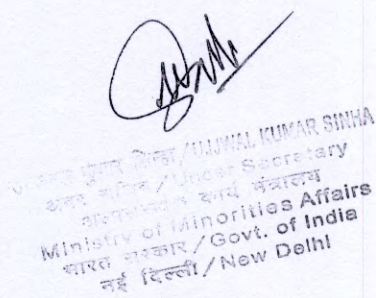 कुमार सिन्हा/UJJWAL KUMAR SINHA
अवर सचिव/Under Secretary
कार्य मंत्रालय
Ministry of Minorities Affairs
भारत सरकार/Govt. of India
नई दिल्ली/New Delhi